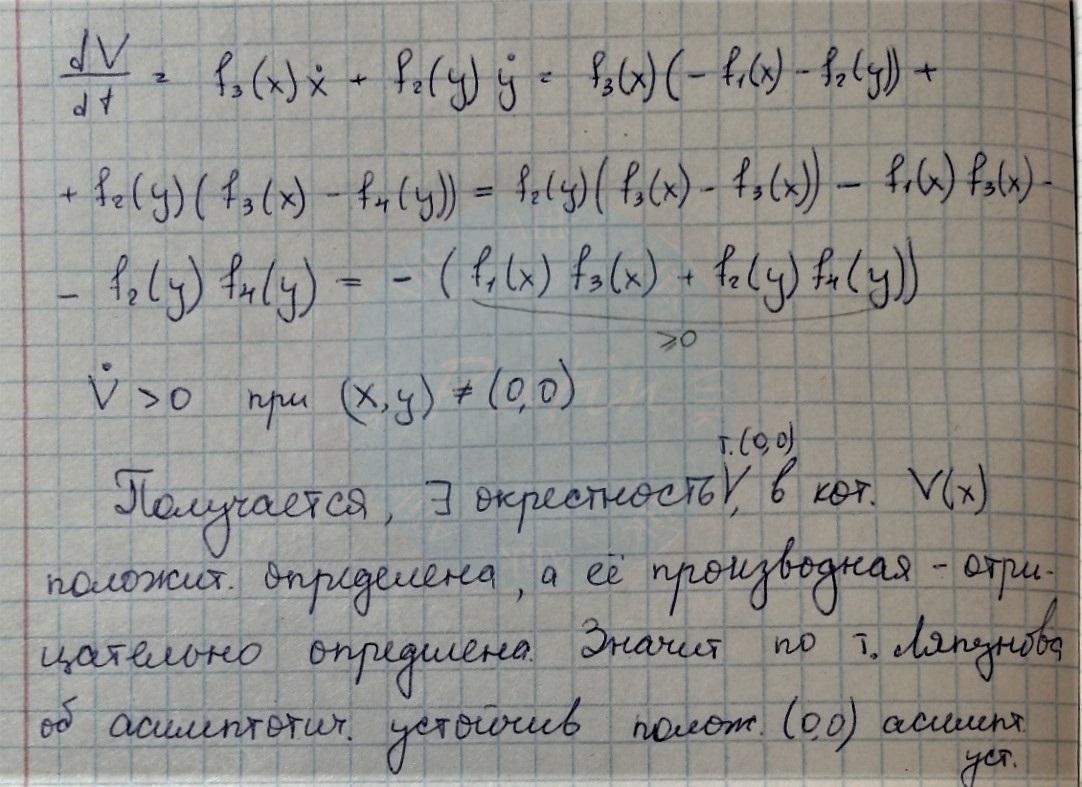 dV/dt = f₃(x)ẋ + f₂(y)ẏ = f₃(x)(- f₁(x) - f₂(y)) +
+ f₂(y)(f₃(x) - f₄(y)) = f₂(y)(f₃(x) - f₃(x)) - f₁(x) f₃(x) -
- f₂(y) f₄(y) = - (f₁(x) f₃(x) + f₂(y) f₄(y))
≥0
V̇ > 0 при (x,y) ≠ (0,0)
т.(0,0)
Получается, ∃ окрестность V, в кот. V(x)
положит. определена, а её производная - отри-
цательно определена. Значит по т. Ляпунова
об асимптотич. устойчив полож. (0,0) асимпт.
уст.